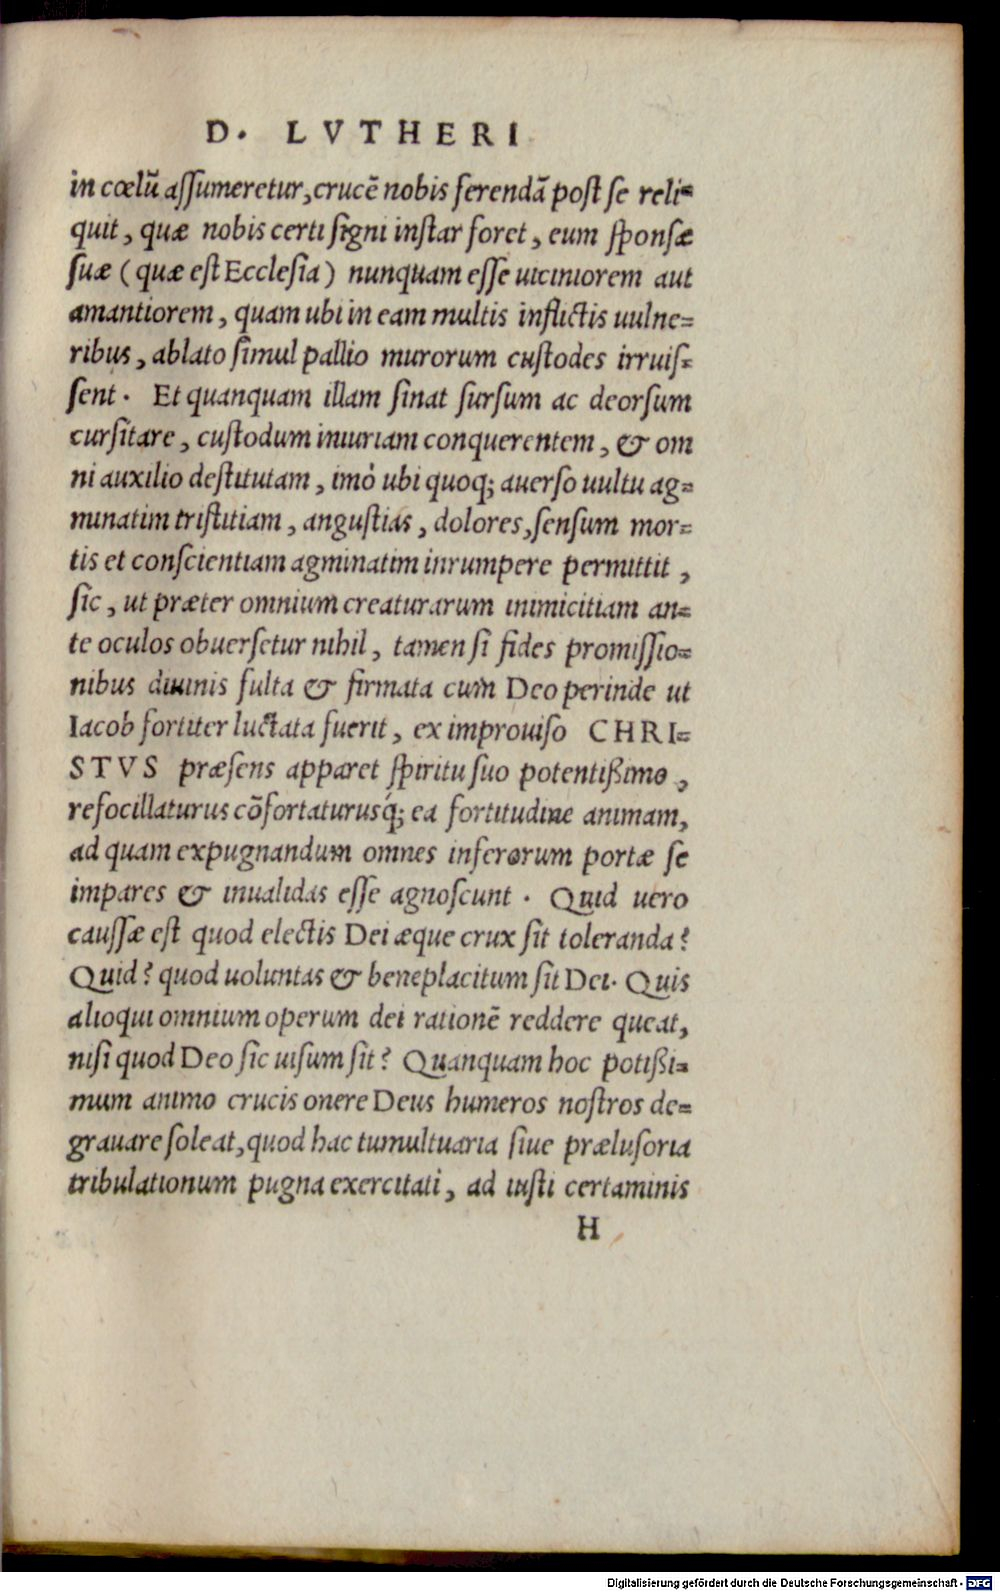 D. LVTHERI
in cœlũ aſſumeretur, crucẽ nobis ferendã poſt ſe reli-
quit, quæ nobis certi ſigni inſtar foret, eum ſponſæ
ſuæ (quæ eſt Eccleſia) nunquam eſſe uiciniorem aut
amantiorem, quam ubi in eam multis inflictis uulne=
ribus, ablato ſimul pallio murorum cuſtodes irruiſ=
ſent. Et quanquam illam ſinat ſurſum ac deorſum
curſitare, cuſtodum iniuriam conquerentem, & om
ni auxilio deſtitutam, imò ubi quoq; auerſo uultu ag=
minatim triſtitiam, anguſtias, dolores, ſenſum mor=
tis et conſcientiam agminatim inrumpere permittit,
ſic, ut præter omnium creaturarum inimicitiam an=
te oculos obuerſetur nihil, tamen ſi fides promiſſio=
nibus diuinis fulta & firmata cum Deo perinde ut
Iacob fortiter luctata fuerit, ex improuiſo CHRI=
STVS præſens apparet ſpiritu ſuo potentißimo,
refocillaturus cõfortaturusq́; ea fortitudine animam,
ad quam expugnandum omnes inferorum portæ ſe
impares & inualidas eſſe agnoſcunt. Quid uero
cauſſæ eſt quod electis Dei æque crux ſit toleranda?
Quid? quod uoluntas & beneplacitum ſit Dei. Quis
alioqui omnium operum dei rationẽ reddere queat,
niſi quod Deo ſic uiſum ſit? Quanquam hoc potißi=
mum animo crucis onere Deus humeros noſtros de=
grauare ſoleat, quod hac tumultuaria ſiue præluſoria
tribulationum pugna exercitati, ad iuſti certaminis
H
Digitalisierung gefördert durch die Deutsche Forschungsgemeinschaft - DFG